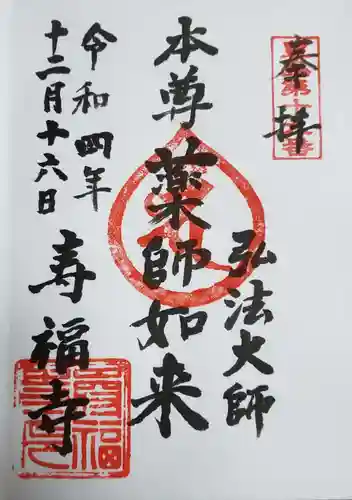 奉拝
弘法大師
本尊 薬師如来
令和四年
十二月十六日
寿福寺